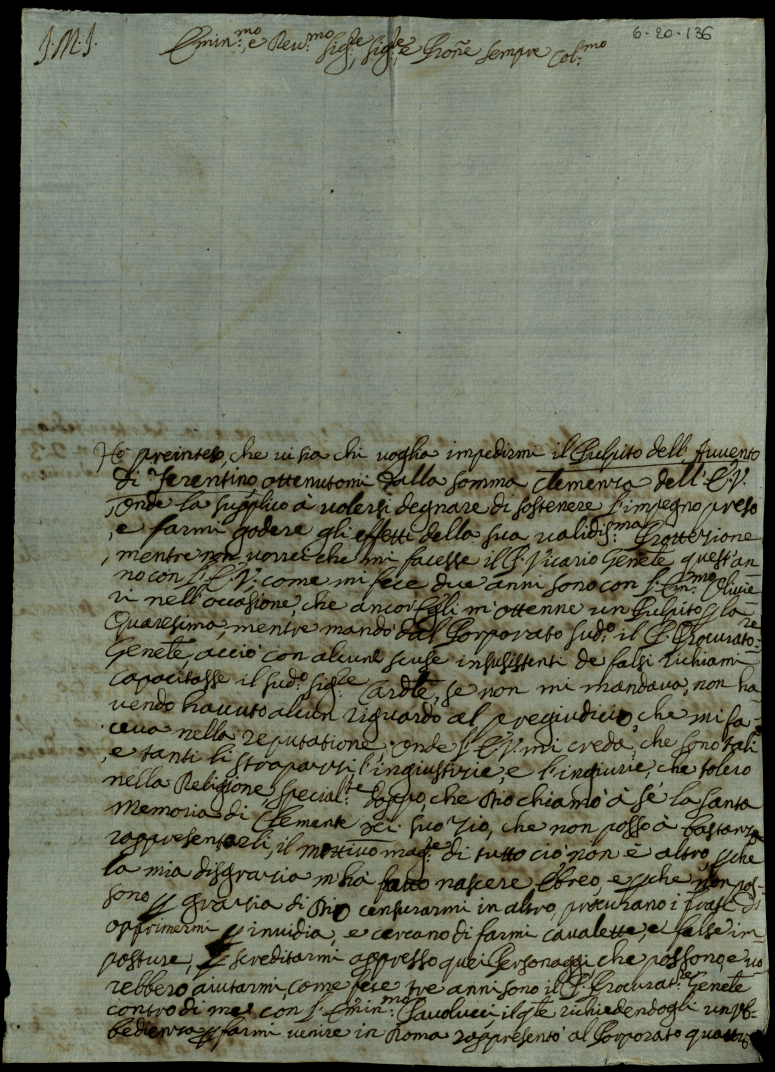 6-20-136
J. M. J.
Emin:mo e Rev:mo Sig:re, Sig:re, e Prone sempre Col:mo
Hò preinteso, che vi sia chi voglia impedirmi il Pulpito dell'Avvento
di Ferentino ottenutomi dalla somma Clemenza dell'E.V.
Onde la supplico à volersi degnare di sostenere l'impegno preso
, e farmi godere gli effetti della sua validis:ma Protezione
, mentre non vorrei che mi facesse il P. Vicario Genle quest'an
no con l'E.V. come mi fece due anni sono con l'Em:mo Olivie
ri nell'occasione, che ancor Egli m'ottenne un Pulpito p la
Quaresima, mentre mandò dal Porporato sud:o il P. Procurato:re
Genle, acciò con alcune scuse insusistenti de falsi richiami
capacitasse il sud:o Sig:re Cardle, se non mi mandava, non ha
vendo havuto alcun riguardo al pregiudicio che mi fa
ceva nella reputatione. Onde l'E.V. mi creda, che sono tali
, e tanti li strapazzi, l'ingiustizie, e l'ingiurie, che tolero
nella Religione, special:te doppo, che Dio chiamò à sé la santa
Memoria di Clemente XI suo Zio, che non posso à bastanza
rappresentarli, il mottivo mag:re di tutto ciò non è altro pche
la mia disgrazia m'hà fatto nascere Ebreo, e pche non pos-
sono p grazia di Dio censurarmi in altro, procurano i frati di
opprimermi p invidia, e cercano di farmi cavalette, e false im
posture, p screditarmi appresso quei Personaggi che possono, e vo
rebbero aiutarmi, come fece tre anni sono il P. Procurat:re Genle
contro di me con l'Emin:mo Paolucci il qle richiedendogli un'ub-
bedienza p farmi venire in Roma rappresentò al Porporato quattro